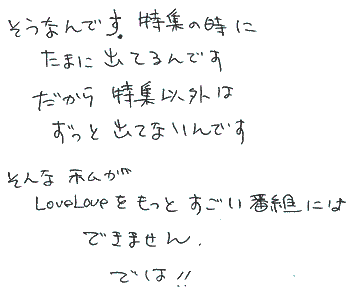 そうなんです。特集の時に
たまに出てるんです
だから特集以外は
ずっと出てないんです
そんな私が
LoveLoveをもっとすごい番組には
できません.
では!!